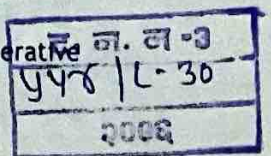 erative
न. ल -३
५५४ | L- 30
२००६